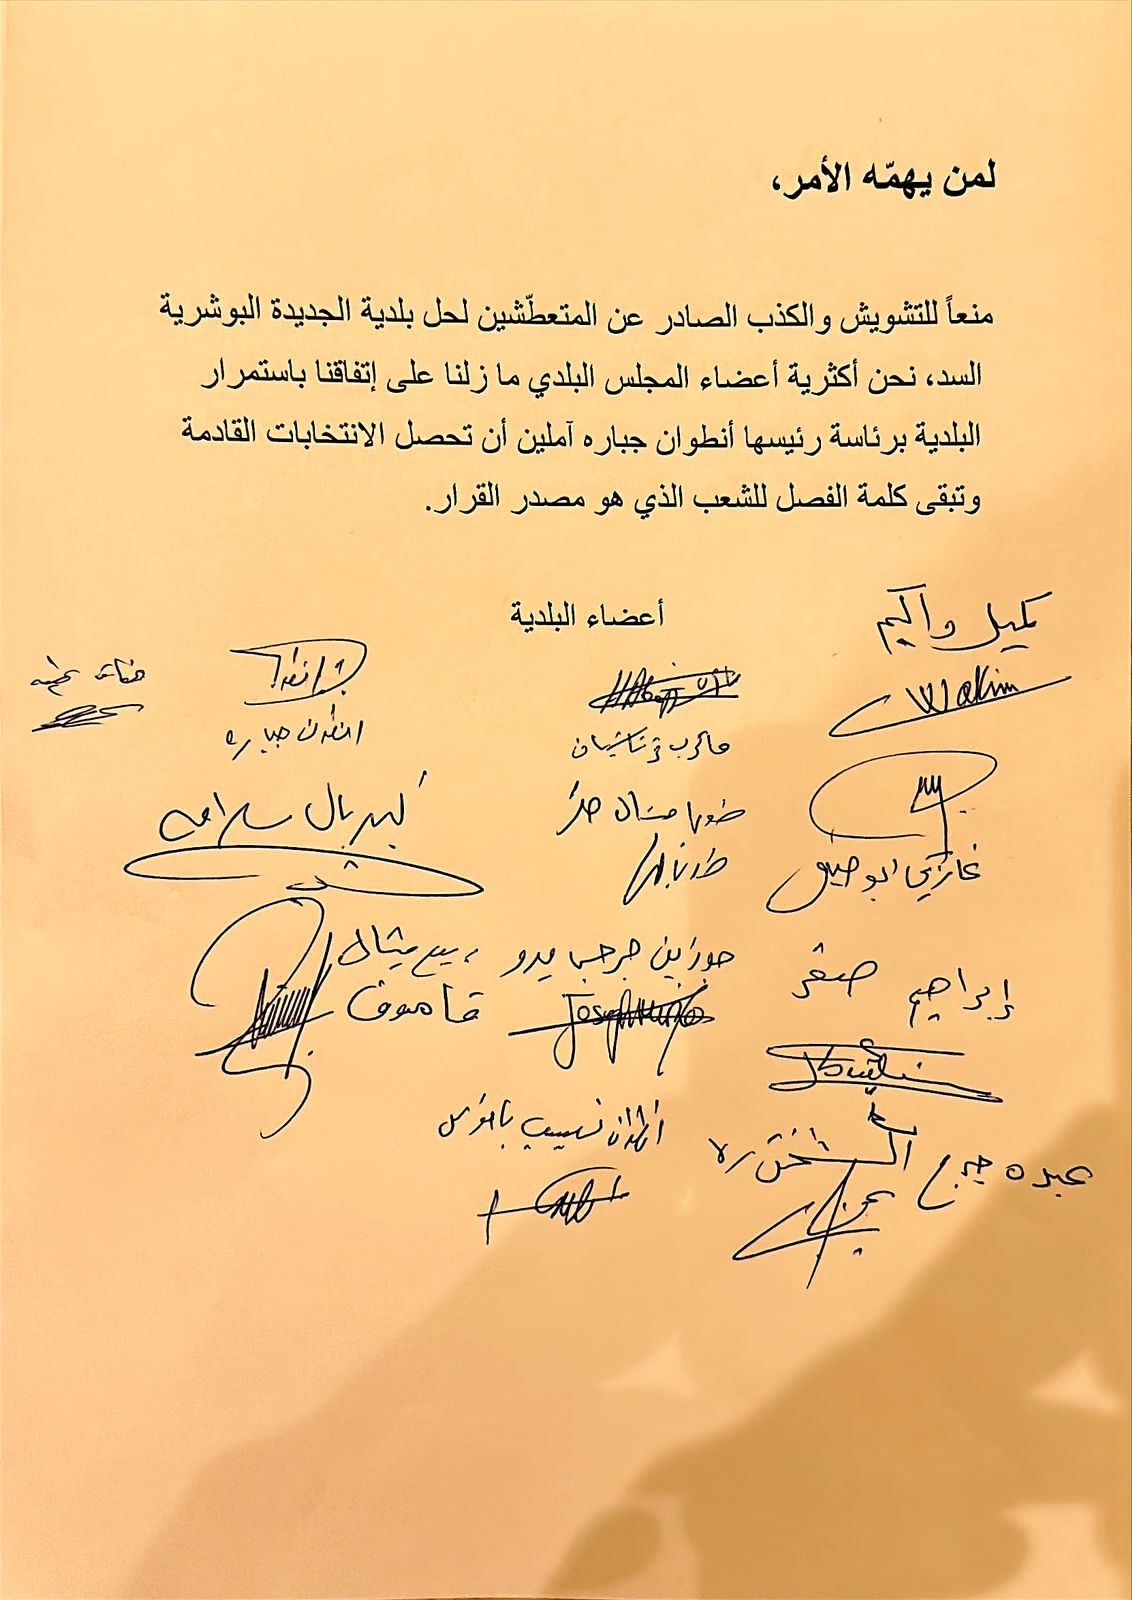 لمن يهمّه الأمر،
منعاً للتشويش والكذب الصادر عن المتعطّشين لحل بلدية الجديدة البوشرية
السد، نحن أكثرية أعضاء المجلس البلدي ما زلنا على إتفاقنا باستمرار
البلدية برئاسة رئيسها أنطوان جباره آملين أن تحصل الانتخابات القادمة
وتبقى كلمة الفصل للشعب الذي هو مصدر القرار.
أعضاء البلدية
كميل واكيم
Wakim
انطوان جباره
كبريال سلامه
غازي ابو
ابراهيم صقر
جوزين جرجس مرو
ربيع ميشال
قاموف
انطوان نسيب بانوس
عبده جرج